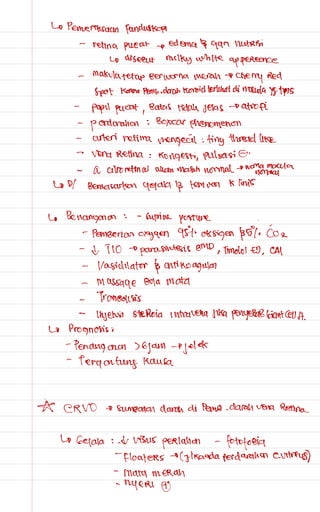 ↳ Pemeriksaan Funduskopi
- retina pucat → edema & ggn nutrisi
↳ disebut milky white apperance
- makula tetap berwarna merah → cherry Red
spot karena Pemb. darah koroid terlihat di makula yg tipis
- papil pucat, Batas tidak jelas → atrofi
- perdarahan : Boxcar phenomenon
- arteri retina mengecil : tiny thread like
- vena Retina : Kongesti, Pulsasi ⊖
- a. cilioretinal akan masih normal → warna makula normal
↳ D/ Berdasarkan gejala & temuan klinis
↳ Penanganan : - supine posture
- Pemberian oxygen 95% oksigen & 5% CO2
- ↓ TIO → parasintesis BMD, Timolol ED, CAI
- Vasidilator & antikoagulan
- massage Bola mata
- Trombolisis
- Injeksi steroid intravena jika penyebab Giant Cell A.
↳ Prognosis :
- Penanganan > 6 jam → jelek
- Tergantung kausa
☆ CRVO → sumbatan darah di Pemb. darah vena Retina
↳ Gejala : - ↓ visus perlahan - fotofobia
- Floaters → (jika ada perdarahan c. vitreus)
- mata merah
- nyeri ⊕